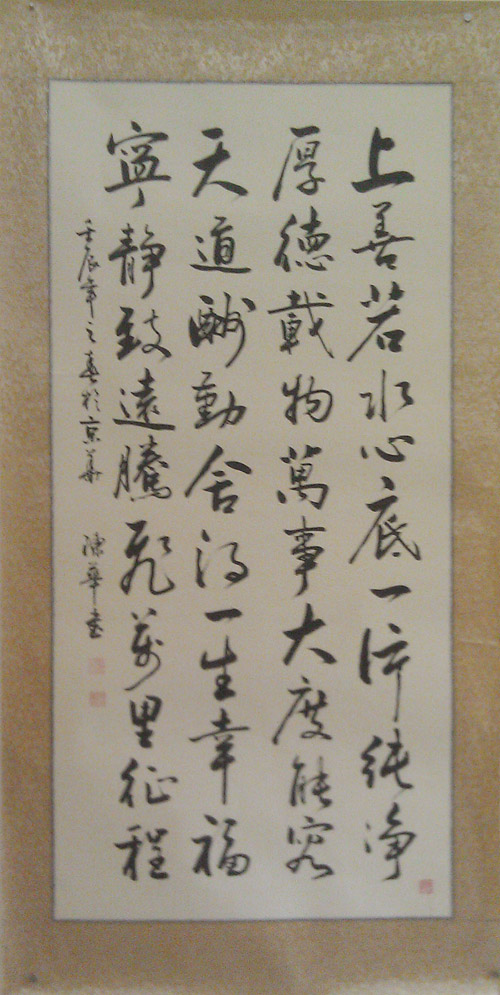 上善若水心底一片纯净
厚德載物萬事大度能容
天道酬勤舍得一生幸福
寧靜致遠騰飛万里征程
壬辰年之春於京華 陳華书